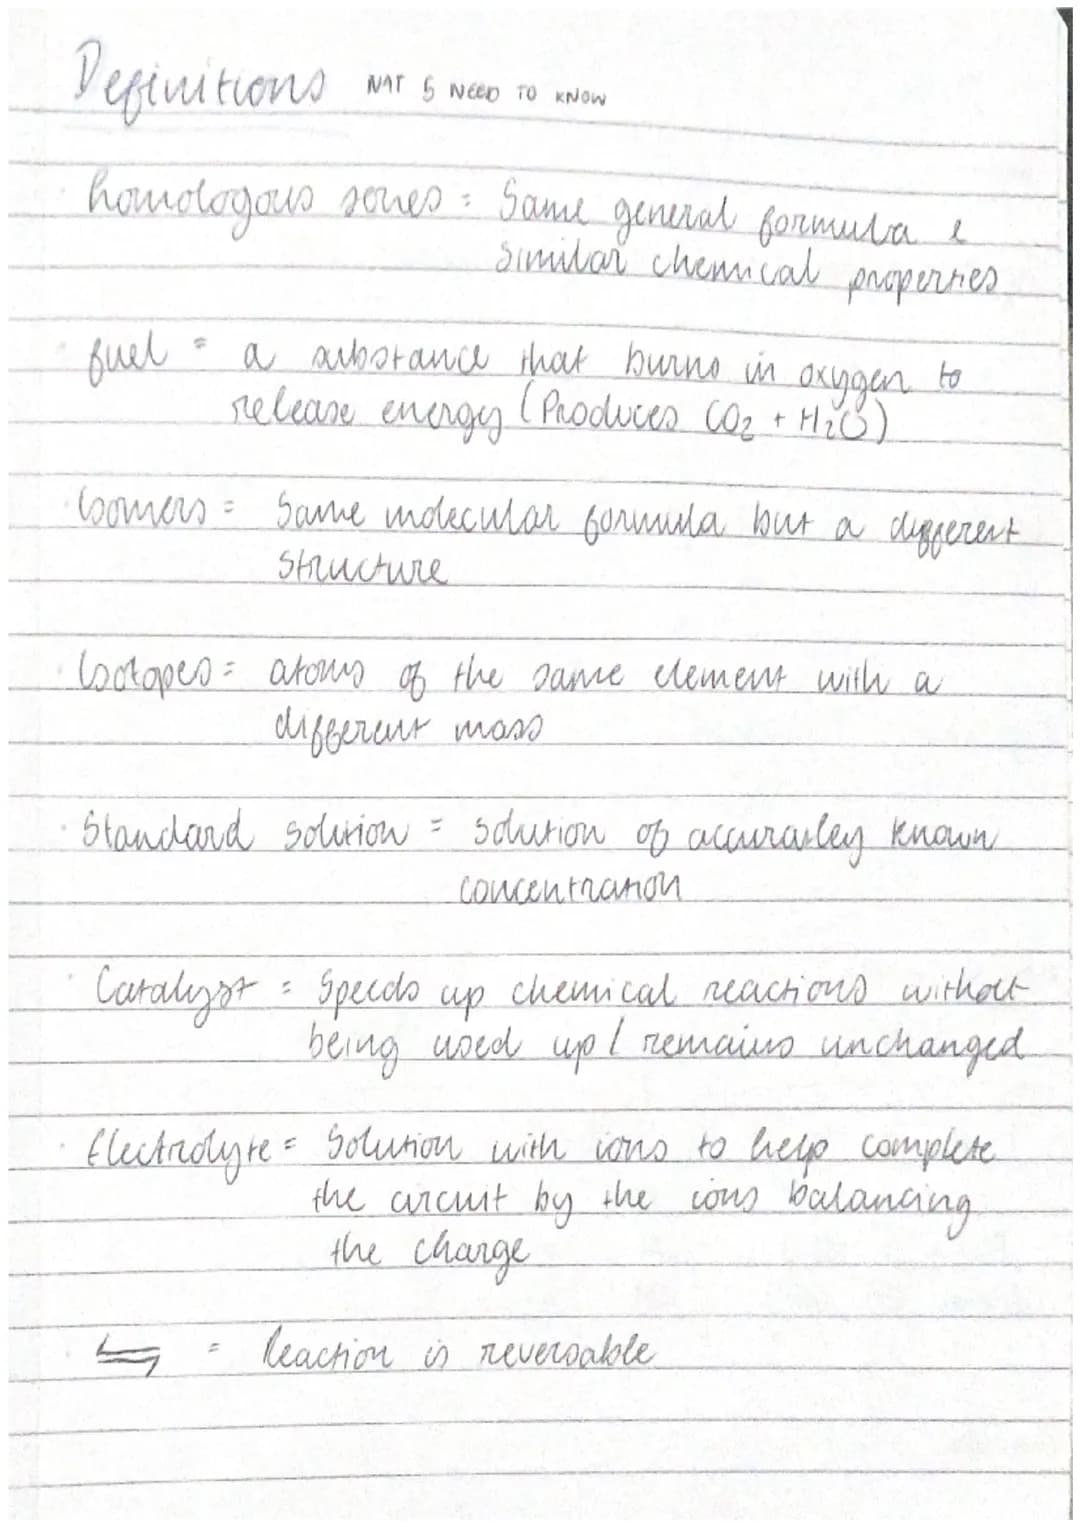 Definitions NAT 5 NEED TO KNOW
· homologous series = Same general formula &
similar chemical properties
· fuel = a substance that burns in oxygen to
release energy (Produces CO₂ + H₂O)
· Isomers = Same molecular formula but a different
structure
· Isotopes = atoms of the same element with a
different mass
· Standard solution = solution of accuratley known
concentration
· Catalyst = Speeds up chemical reactions without
being used up / remains unchanged
· Electrolyte = Solution with ions to help complete
the circuit by the ions balancing
the charge
· ⇋ = Reaction is reversable